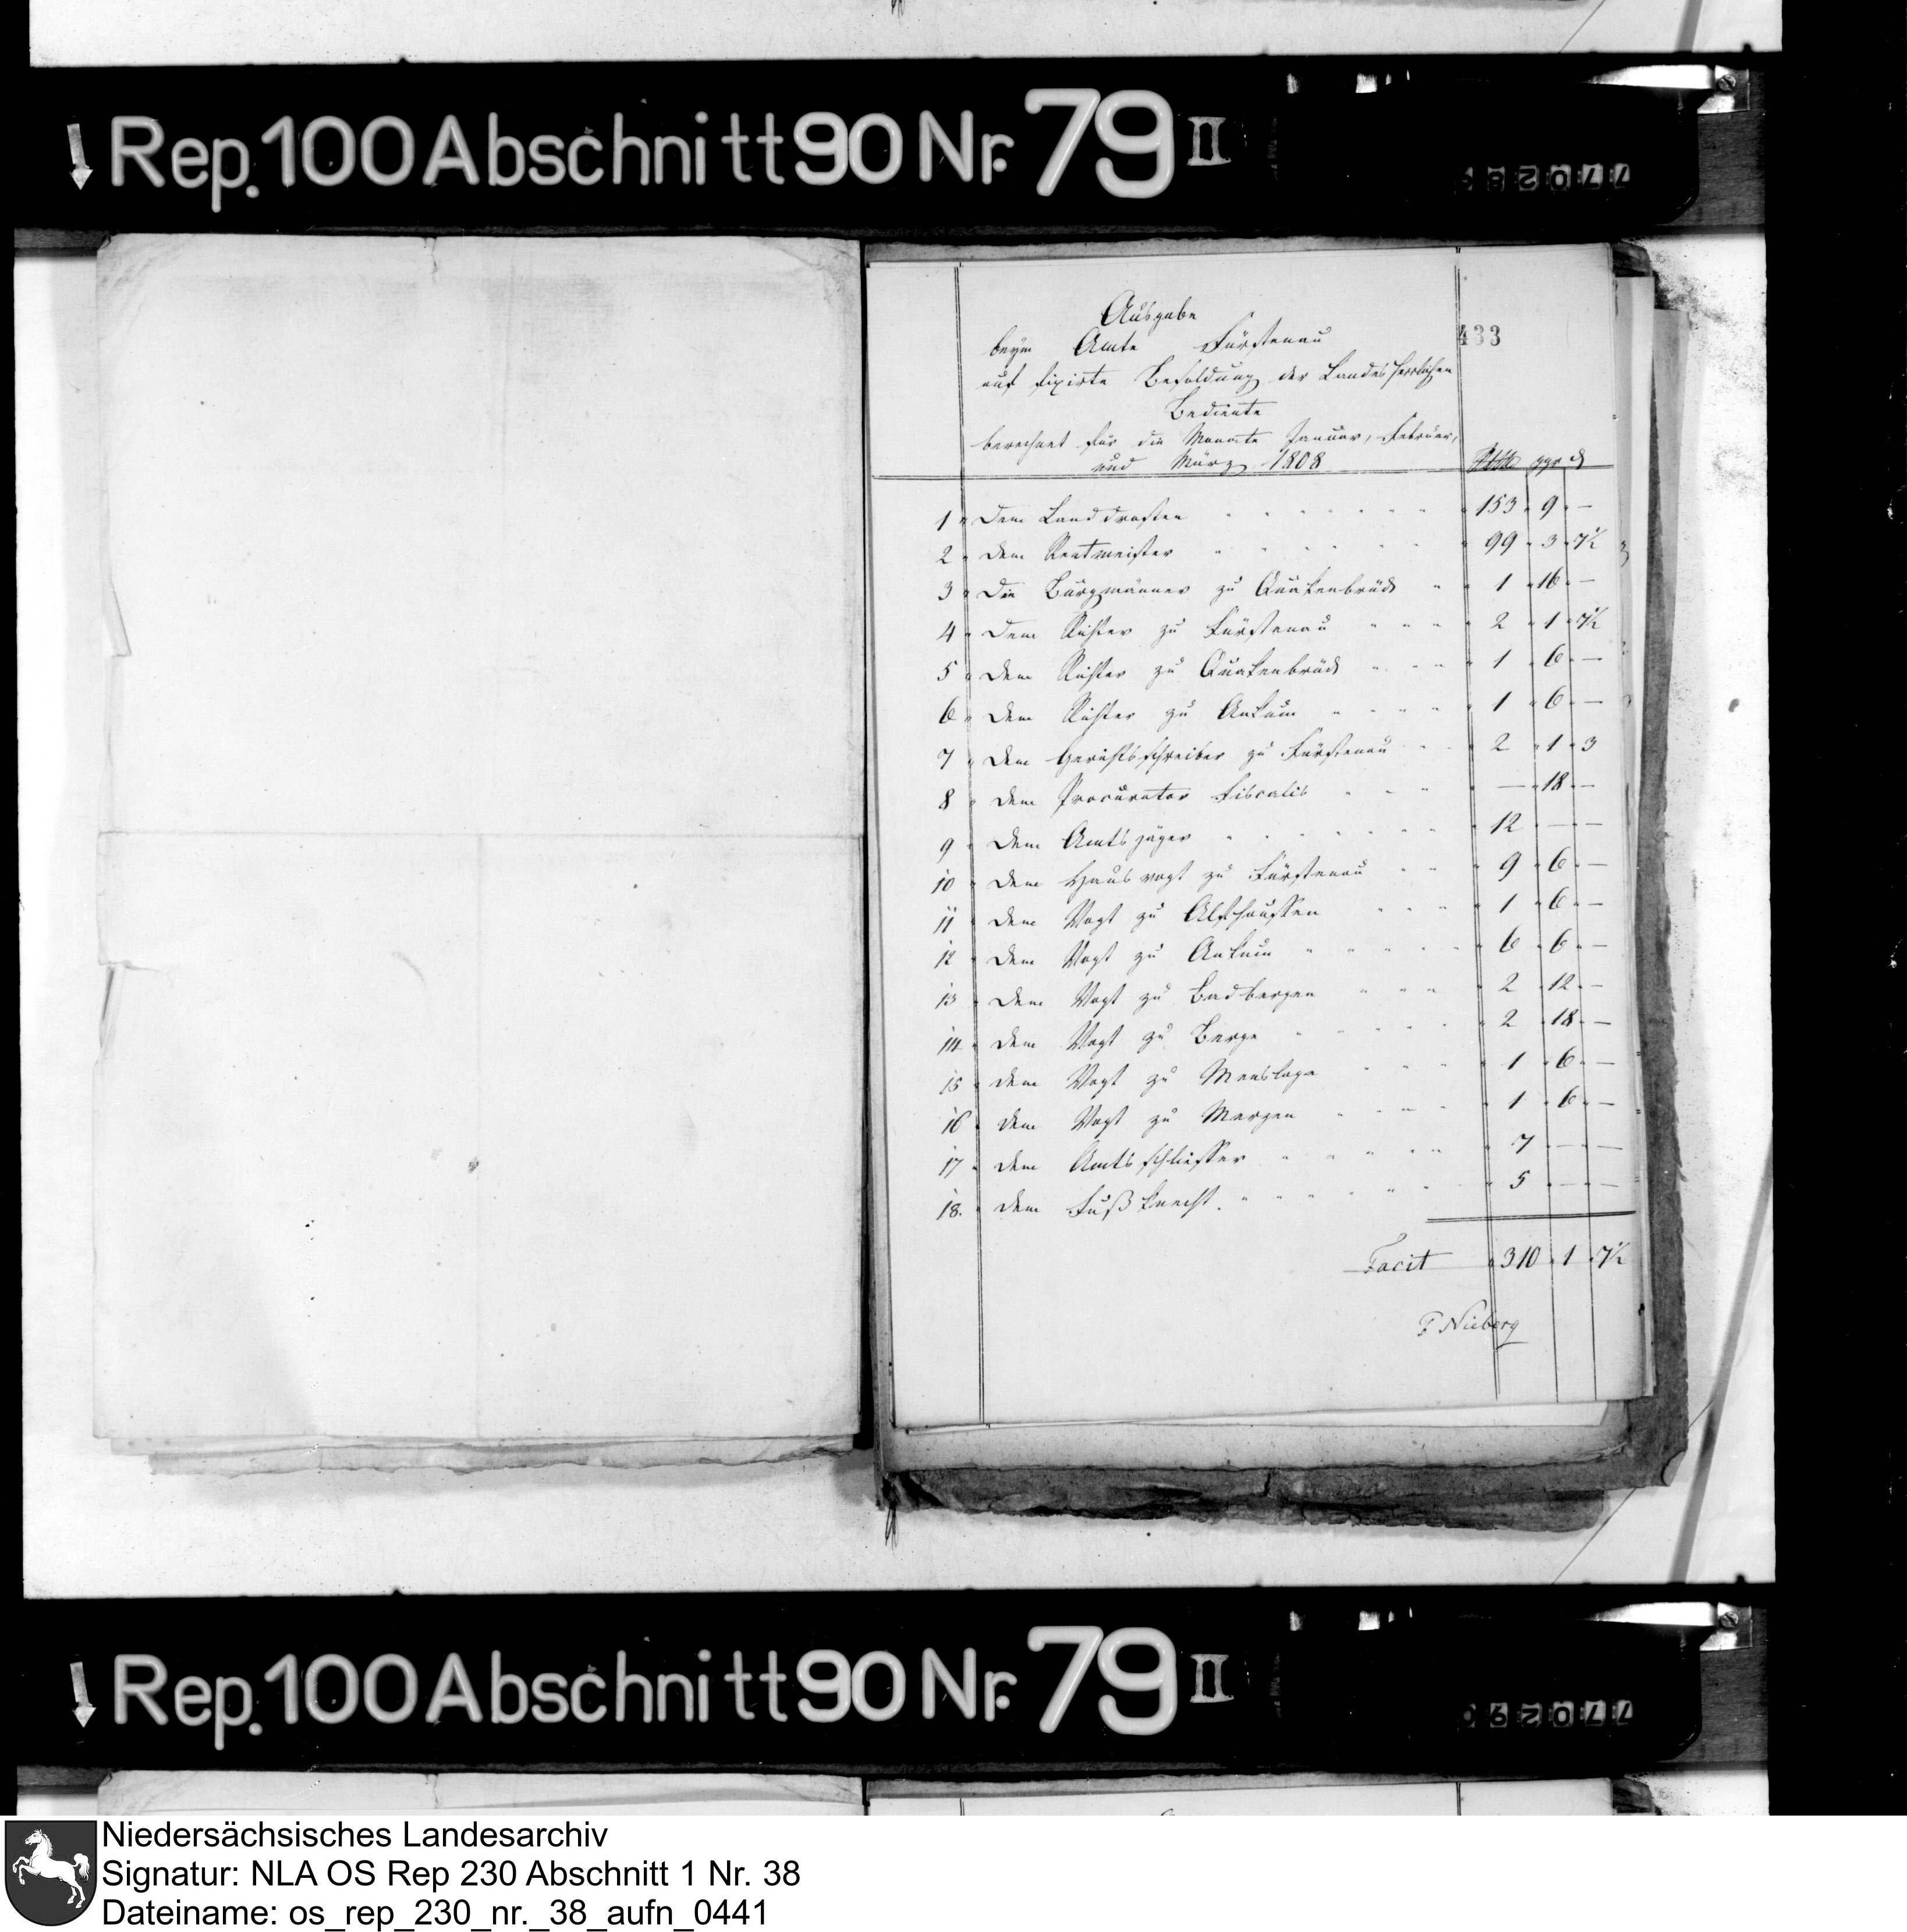 Rep. 100 Abschnitt 90 Nr. 79 II
77028
433
Ausgabe
beym Amte Fürstenau
auf fixirte Besoldung der Landesherrlichen
Bediente
berechnet für die Monate Januar, Februar,
und März 1808
Rthlr ggr d
1 Dem Landdrosten 153 9 —
2 dem Rentmeister 99 3 7½
3 Den Burgmänner zu Quakenbrück 1 16 —
4 Dem Richter zu Fürstenau 2 1 7½
5 dem Richter zu Quakenbrück 1 6 —
6 dem Richter zu Ankum 1 6 —
7 dem Gerichtsschreiber zu Fürstenau 2 1 3
8 dem Procurator Fiscalis — 18 —
9 dem Amtsjäger 12 — —
10 dem Hausvogt zu Fürstenau 9 6 —
11 dem Vogt zu Alfhaussen 1 6 —
12 dem Vogt zu Ankum 6 6 —
13 dem Vogt zu Badbergen 2 12 —
14 dem Vogt zu Berge 2 18 —
15 dem Vogt zu Menslage 1 6 —
16 dem Vogt zu Merzen 1 6 —
17 dem Amtsschliesser 7 — —
18. dem Fußknecht. 5 — —
Facit 310 1 7½
F Nieberg
Rep. 100 Abschnitt 90 Nr. 79 II
770290
Niedersächsisches Landesarchiv
Signatur: NLA OS Rep 230 Abschnitt 1 Nr. 38
Dateiname: os_rep_230_nr._38_aufn_0441